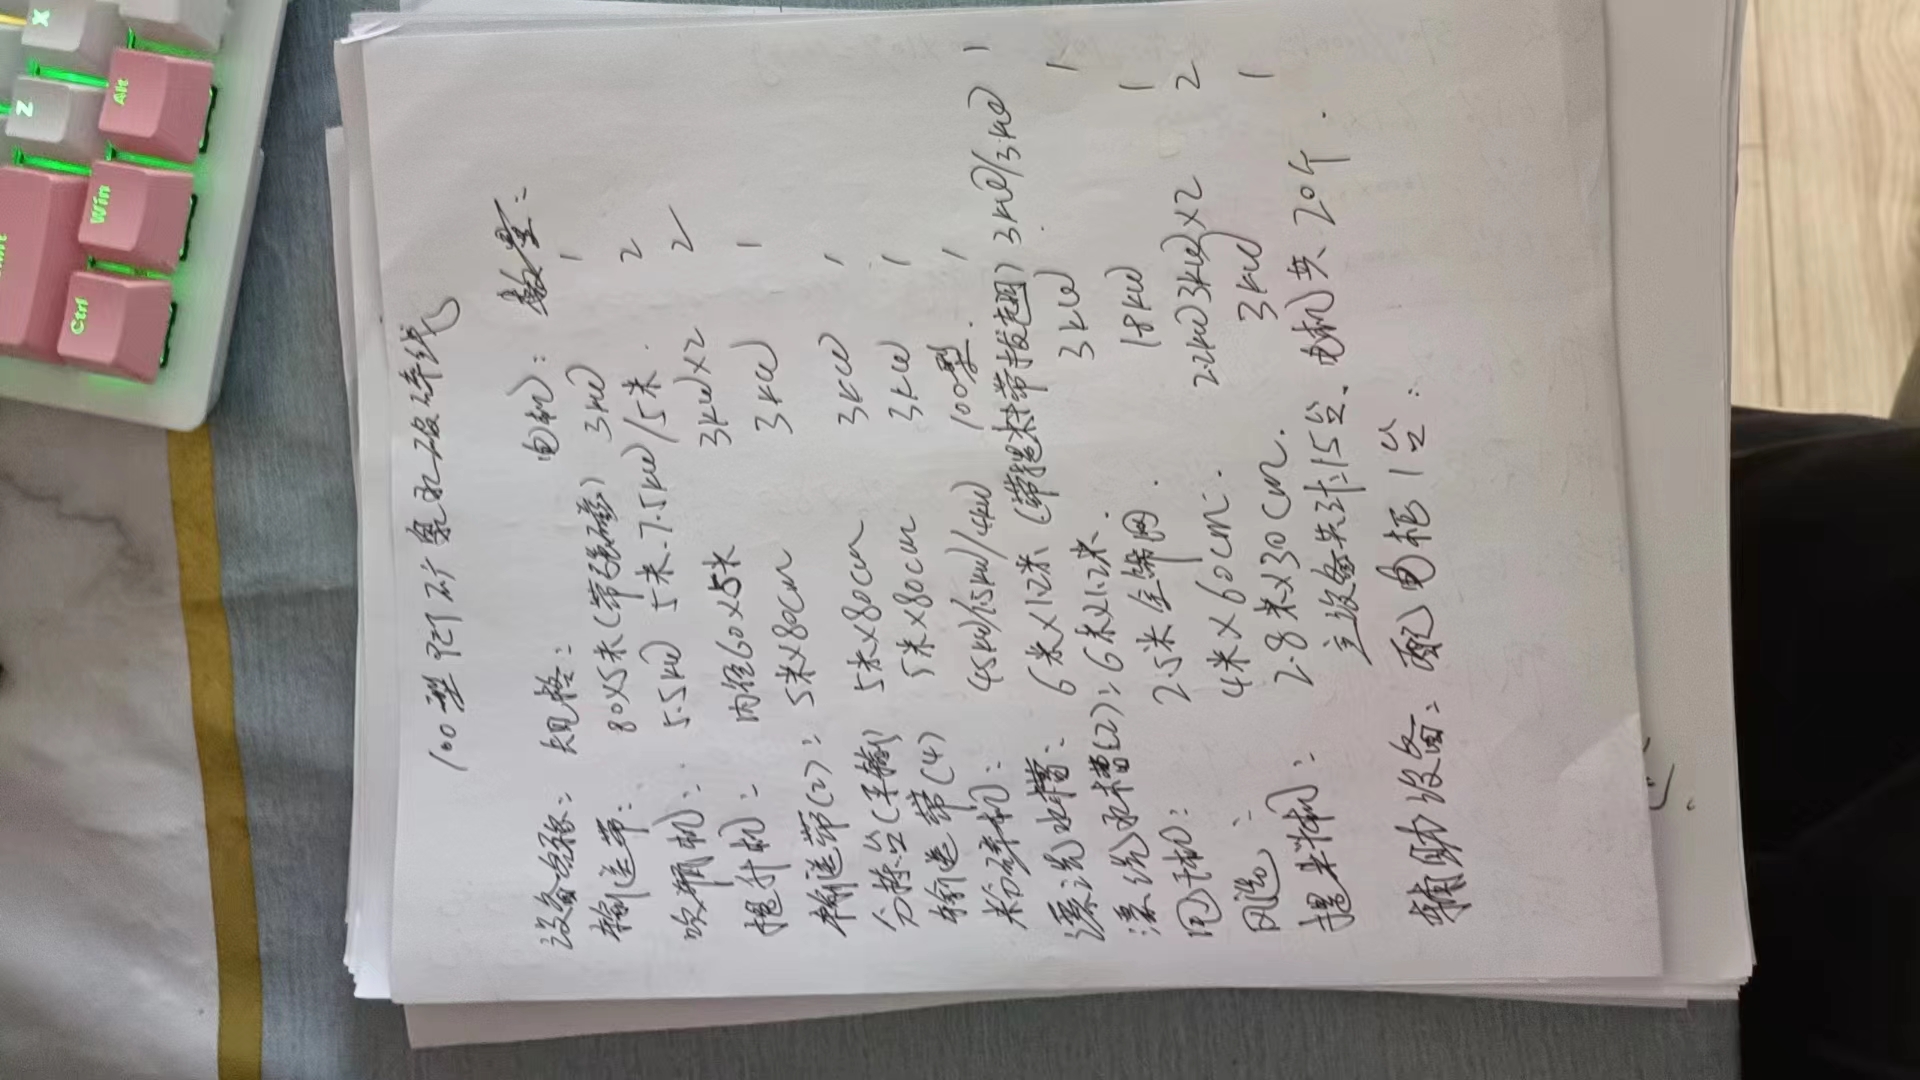 100型 矿泉水破碎线
设备名称: 规格: 电机: 数量:
输送带: 80X5米(带强磁) 3kw 1
5.5kw 5米-7.5kw/5米. 2
吹瓶机: 3kw×2 2
提升机: 内径60×5米 3kw 1
输送带(2): 5米×80cm
分拣台(手输) 5米×80cm 3kw 1
输送带(4) 5米×80cm 3kw 1
粉碎机: 45kw/15kw/4kw 100型. 1
漂洗水槽: 6米×1.2米 (带提料带拔翅) 3kw/3kw 1
漂洗水槽(2): 6米×1.2米. 3kw 1
甩干机: 2.5米 全锦网. 18kw 1
风选: 4米×60cm. 22kw 3kw×2 2
提料机: 2.8米×30cm. 3kw 1
主设备共计:15台. 电机共20个.
辅助设备: 配电柜1台:
Ctrl
Win
Alt
Z
X